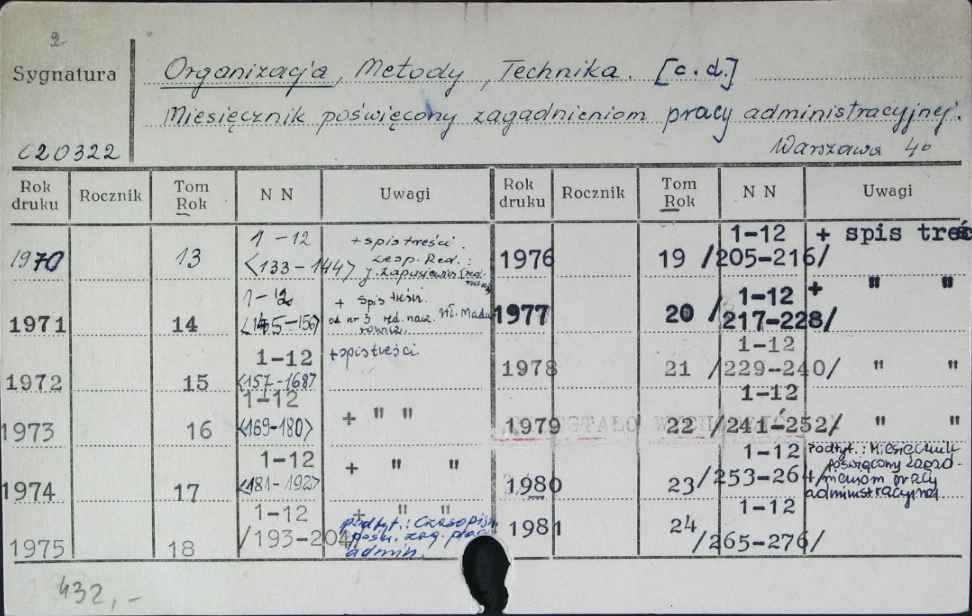 2
Sygnatura
Organizacja, Metody, Technika. [c.d.]
Miesięcznik poświęcony zagadnieniom pracy administracyjnej.
C20322
Warszawa 4°
Rok druku Rocznik Tom Rok N N Uwagi Rok druku Rocznik Tom Rok N N Uwagi
1970 13 1-12 <133-144> + spis treści. zesp. Red.:
1971 14 1-12 <145-156> + spis treści. od nr 3 red. nacz.
1972 15 1-12 <157-168> + spis treści
1973 16 1-12 <169-180> + " "
1974 17 1-12 <181-192> + " "
1975 18 1-12 /193-204 + " " podtyt.: Czasopismo pośw. zag. pracy admin.
1976 19 1-12 /205-216/ + spis treśc
1977 20 1-12 /217-228/ + " "
1978 21 1-12 /229-240/ " "
1979 22 1-12 /241-252/ " "
1980 23 1-12 /253-264/ Podtyt.: Miesięcznik poświęcony zagad-nieniom pracy administracyjnej
1981 24 1-12 /265-276/
432,-